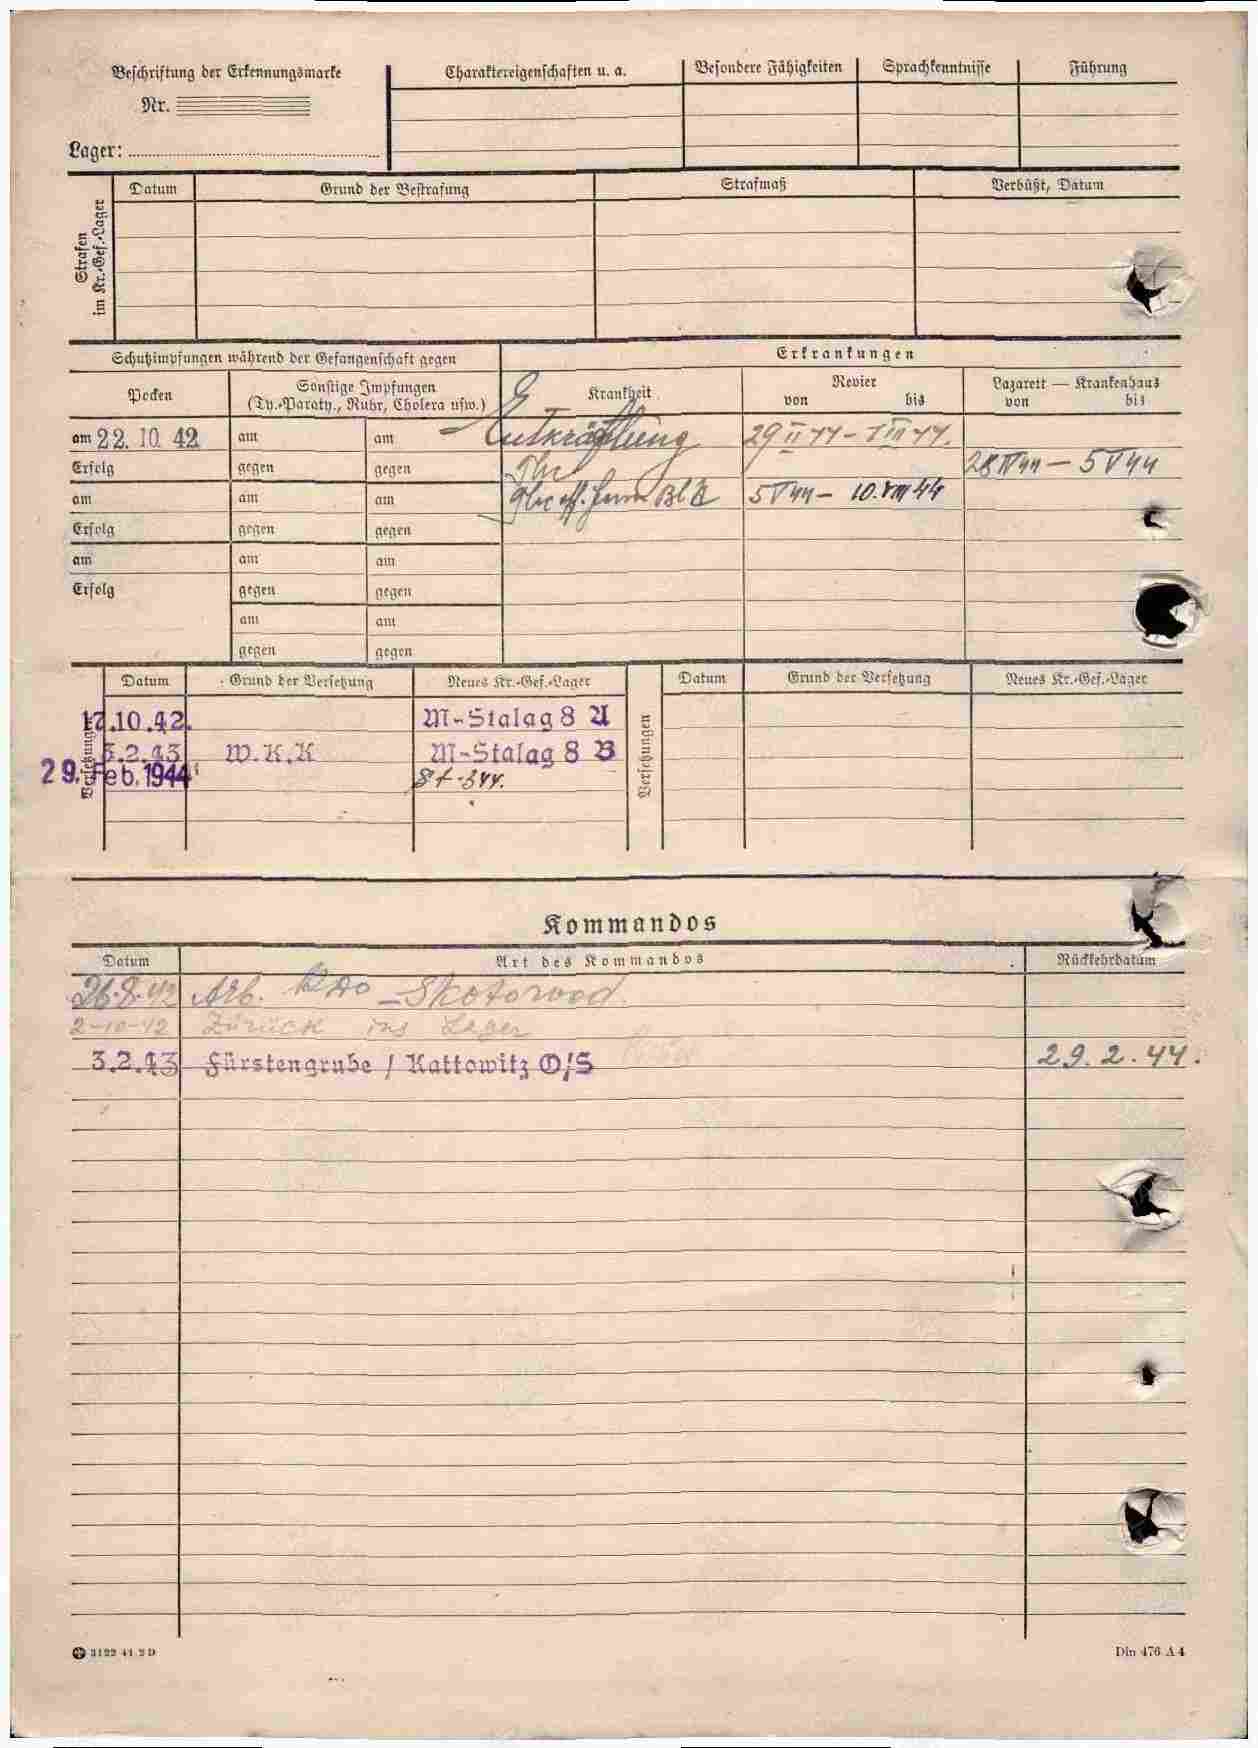 Beschriftung der Erkennungsmarke
Nr.
Lager:
Charaktereigenschaften u. a.
Besondere Fähigkeiten
Sprachkenntnisse
Führung
Strafen im Kr.-Gef.-Lager
Datum
Grund der Bestrafung
Strafmaß
Verbüßt, Datum
Schutzimpfungen während der Gefangenschaft gegen
Erkrankungen
Pocken
Sonstige Impfungen
(Ty.-Paraty., Ruhr, Cholera usw.)
Krankheit
Revier
von bis
Lazarett — Krankenhaus
von bis
am 22. 10. 42 am am Entkräftung 29 II 44 - 7 III 44.
Erfolg gegen gegen Tbc 28 IV 44 — 5 V 44
am am am Tbc off. 5 V 44 - 10. VIII 44
Erfolg gegen gegen
am am am
Erfolg gegen gegen
am am
gegen gegen
Versetzungen
Datum Grund der Versetzung Neues Kr.-Gef.-Lager
17.10.42. M-Stalag 8 A
3.2.43 W.K.K M-Stalag 8 B
29. Feb. 1944 St-344.
Versetzungen
Datum Grund der Versetzung Neues Kr.-Gef.-Lager
Kommandos
Datum Art des Kommandos Rückkehrdatum
26.8.42 Arb. Kdo
2-10-42 Zürück ins Lager
3.2.43 Fürstengrube / Kattowitz O/S 29.2.44.
3122 41 2 D
Din 476 A 4